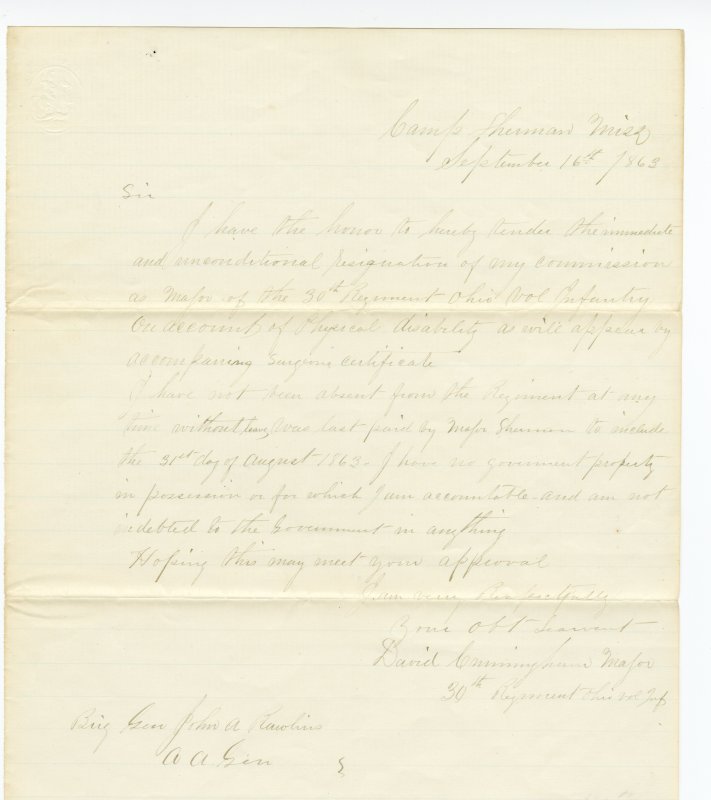 Camp Sherman Miss
September 16th 1863
Sir
I have the honor to hereby tender the immediate
and unconditional resignation of my commission
as Major of the 30th Regiment Ohio Vol Infantry
On account of Physical disability as will appear by
accompaning Surgeons certificate
I have not been absent from the Regiment at any
time without leave, was last paid by Major Sherman to include
the 31st day of August 1863. I have no goverment property
in possession or for which I am accountable and am not
indebted to the Government in anything
Hoping this may meet your approval
I am very Respectfully
Your Obt Servent
David Cunningham Major
30th Regiment Ohio Vol Inf
Brig Gen John A Rawlins
A A Gen